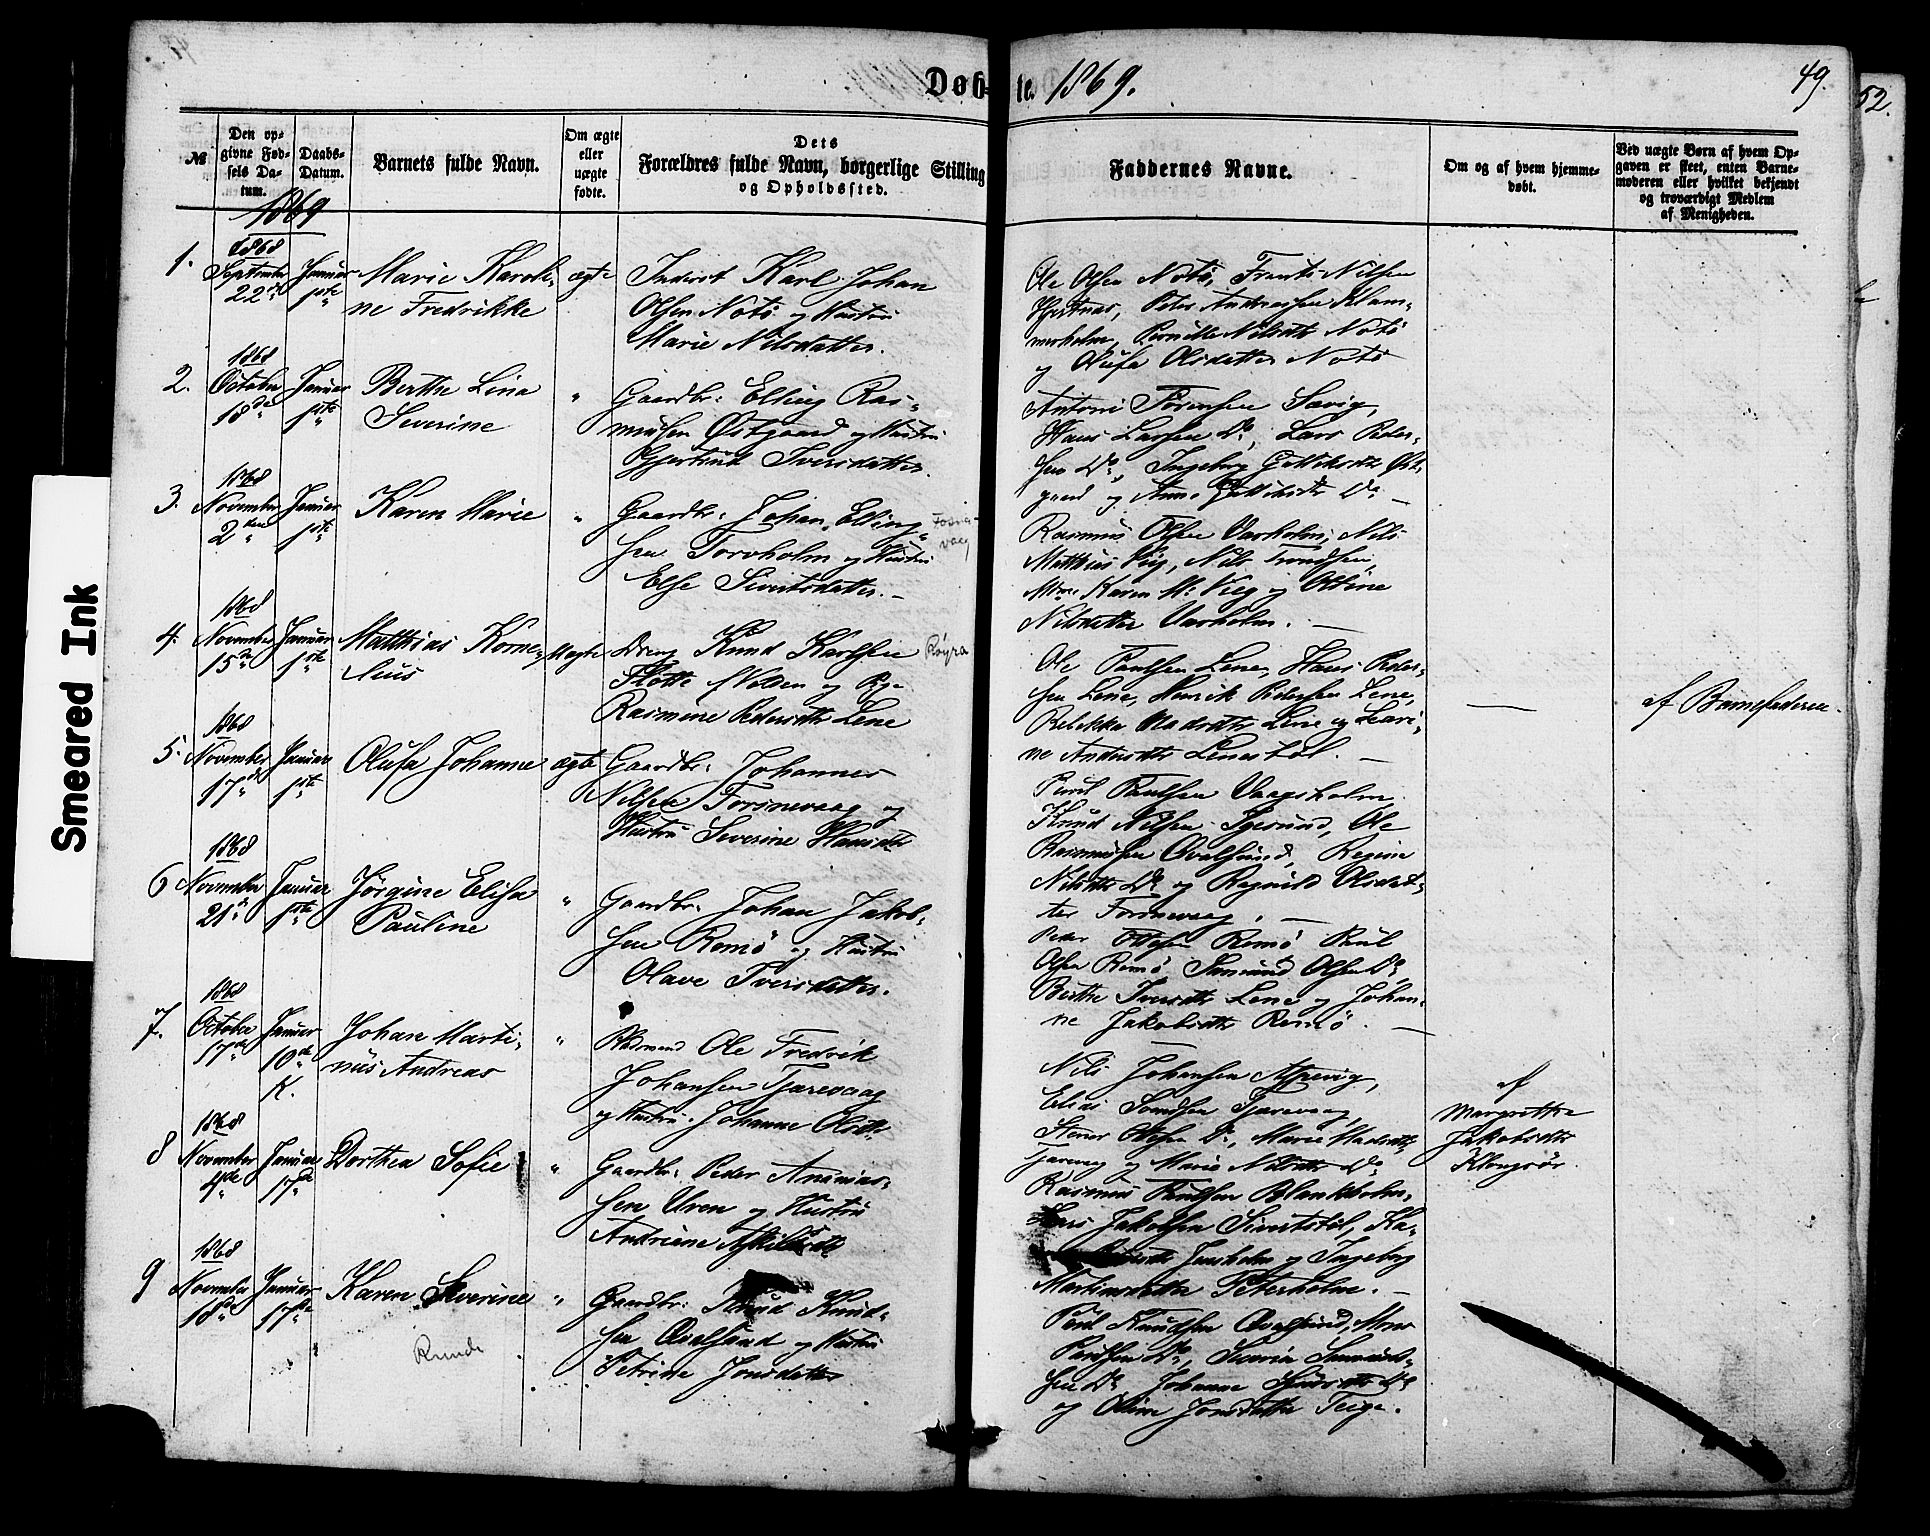 Døb- te. 1869.
49.
52.
Smeared Ink
№
Den op-
givne Fød-
sels Da-
tum.
Daabs-
Datum.
Barnets fulde Navn.
Om ægte
eller
uægte
fødte.
Dets
Forældres fulde Navn, borgerlige Stilling
og Opholdssted.
Faddernes Navne.
Om og af hvem hjemme-
døbt.
Ved uægte Børn af hvem Op-
gaven er skeet, enten Barne-
moderen eller hvilket bekjendt
og troværdigt Medlem
af Menigheden.
1869
1.
1868
September
22de
Januar
1ste
Marie Karoli-
ne Fredrikke
ægte
Inderst Karl Johan
Olsen Notø og Hustru
Marie Nilsdatter.
Ole Olsen Notø, Frants Nilsen
Hjertnæs, Peter Andreassen Flam-
merholm, Pernille Nilsdtr Notø
og Olufa Olsdatter Notø
2.
1868
October
18de
Januar
1ste
Berthe Lina
Severine
"
Gaardbr: Elling Ras-
musen Østgaard og Hustru
Gjertrud Iversdatter.
Antoni Sørensen Savig,
Hans Larsen Do, Lars Peder-
sen Do, Ingeborg
gaard og Anne Do —
3.
1868
November
2den
Januar
1ste
Karen Marie
"
Gaardbr: Johan Elling-
sen Torvholm og Hustru
Else Sivertsdatter. —
Rasmus Olsen Varholm, Nils
Matthias Vig, Nils Trondsen,
Karen M. Vig og Oline
Nilsdatter Varholm. —
4.
1868
November
15de
Januar
1ste
Matthias Korne-
lius
uægte
Dreng Knud Karlsen
Flotte Volden og Pg.
Rasmine Pedersdtr Lene
Røyra
Ole Paulsen Lene, Hans Peder-
sen Lene, Henrik Pedersen Lene,
Rebekka Madsdtr Lene og Lavri-
ne Andersdtr Lenestøl. —
—
af Barnefaderen.
5.
1868
November
17de
Januar
1ste
Olufa Johanne
ægte
Gaardbr: Johannes
Nilsen Torsnevaag og
Hustru Severine Hansdtr
Poul Paulsen Vaagsholm
Knud Nilsen Igesund, Ole
Rasmussen Qvalsund, Regine
Nilsdtr Do og Ragnild Olsdat-
ter Torsnevaag. —
6
1868
November
21de
Januar
1ste
Jørgine Elisa
Pauline
"
Gaardbr: Johan Jakob-
sen Remø og Hustru
Olave Iversdatter.
Peder Ottesen Remø Poul
Olsen Remø, Samund Olsen Do
Berthe Iversdtr Lene og Johan-
ne Jakobsdtr Remø. —
7.
1868
October
17de
Januar
10de
K.
Johan Marti-
nus Andreas
"
Pladsmand Ole Fredrik
Johansen Tjørvaag
og Hustru Johanne Olsdtr.
Nils Johansen Aspevig,
Elias Tjørvaag,
Stener Do, Marie Madsdtr
Tjørvaag og Marie Nilsdtr Do
af
Margrethe
Jakobsdtr
8
1868
November
4de
Januar
17de
Dorthea Sofie
"
Gaardbr: Peder Ananias-
sen Uren og Hustru
Andriane
Rasmus Paulsen Blankholm,
Lars Jakobsen Sivertstøl, Ka-
Jensholm og Ingeborg
Martinsdatter Petersholm. —
9
1868
November
18de
Januar
17de
Karen Severine
Runde
"
Gaardbr: Knud Knud-
sen Qvalsund og Hustru
Petrine Jonsdatter
Poul Knudsen Qvalsund,
Paulsen Do, Severin Samund-
sen Do Johanne Do
og Oline Jonsdatter Teige.